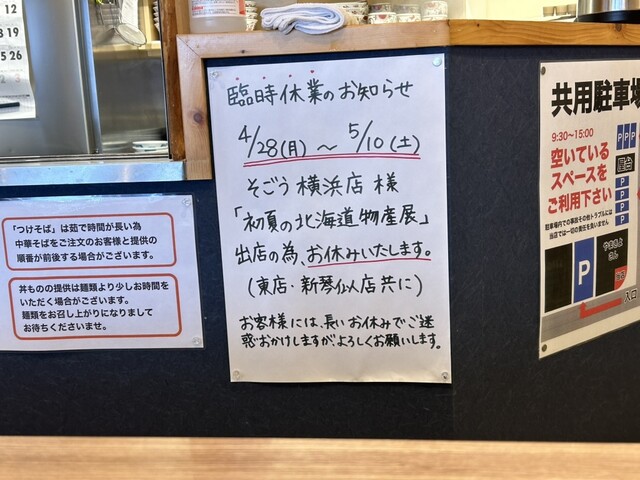 12
19
25 26
臨時休業のお知らせ
4/28(月)～5/10(土)
そごう横浜店様
「初夏の北海道物産展」
出店の為、お休みいたします。
(東店・新琴似店共に)
お客様には、長いお休みでご迷
惑おかけしますがよろしくお願いします。
「つけそば」は茹で時間が長い為
中華そばをご注文のお客様と提供の
順番が前後する場合がございます。
丼ものの提供は麺類より少しお時間を
いただく場合がございます。
麺類をお召し上がりになりまして
お待ちくださいませ。
共用駐車場
9:30～15:00
空いている
スペースを
ご利用下さい
駐車場内での事故その他トラブルには
当店では一切の責任を負いません
PPP
屋台
P
P
P
P
P
入口